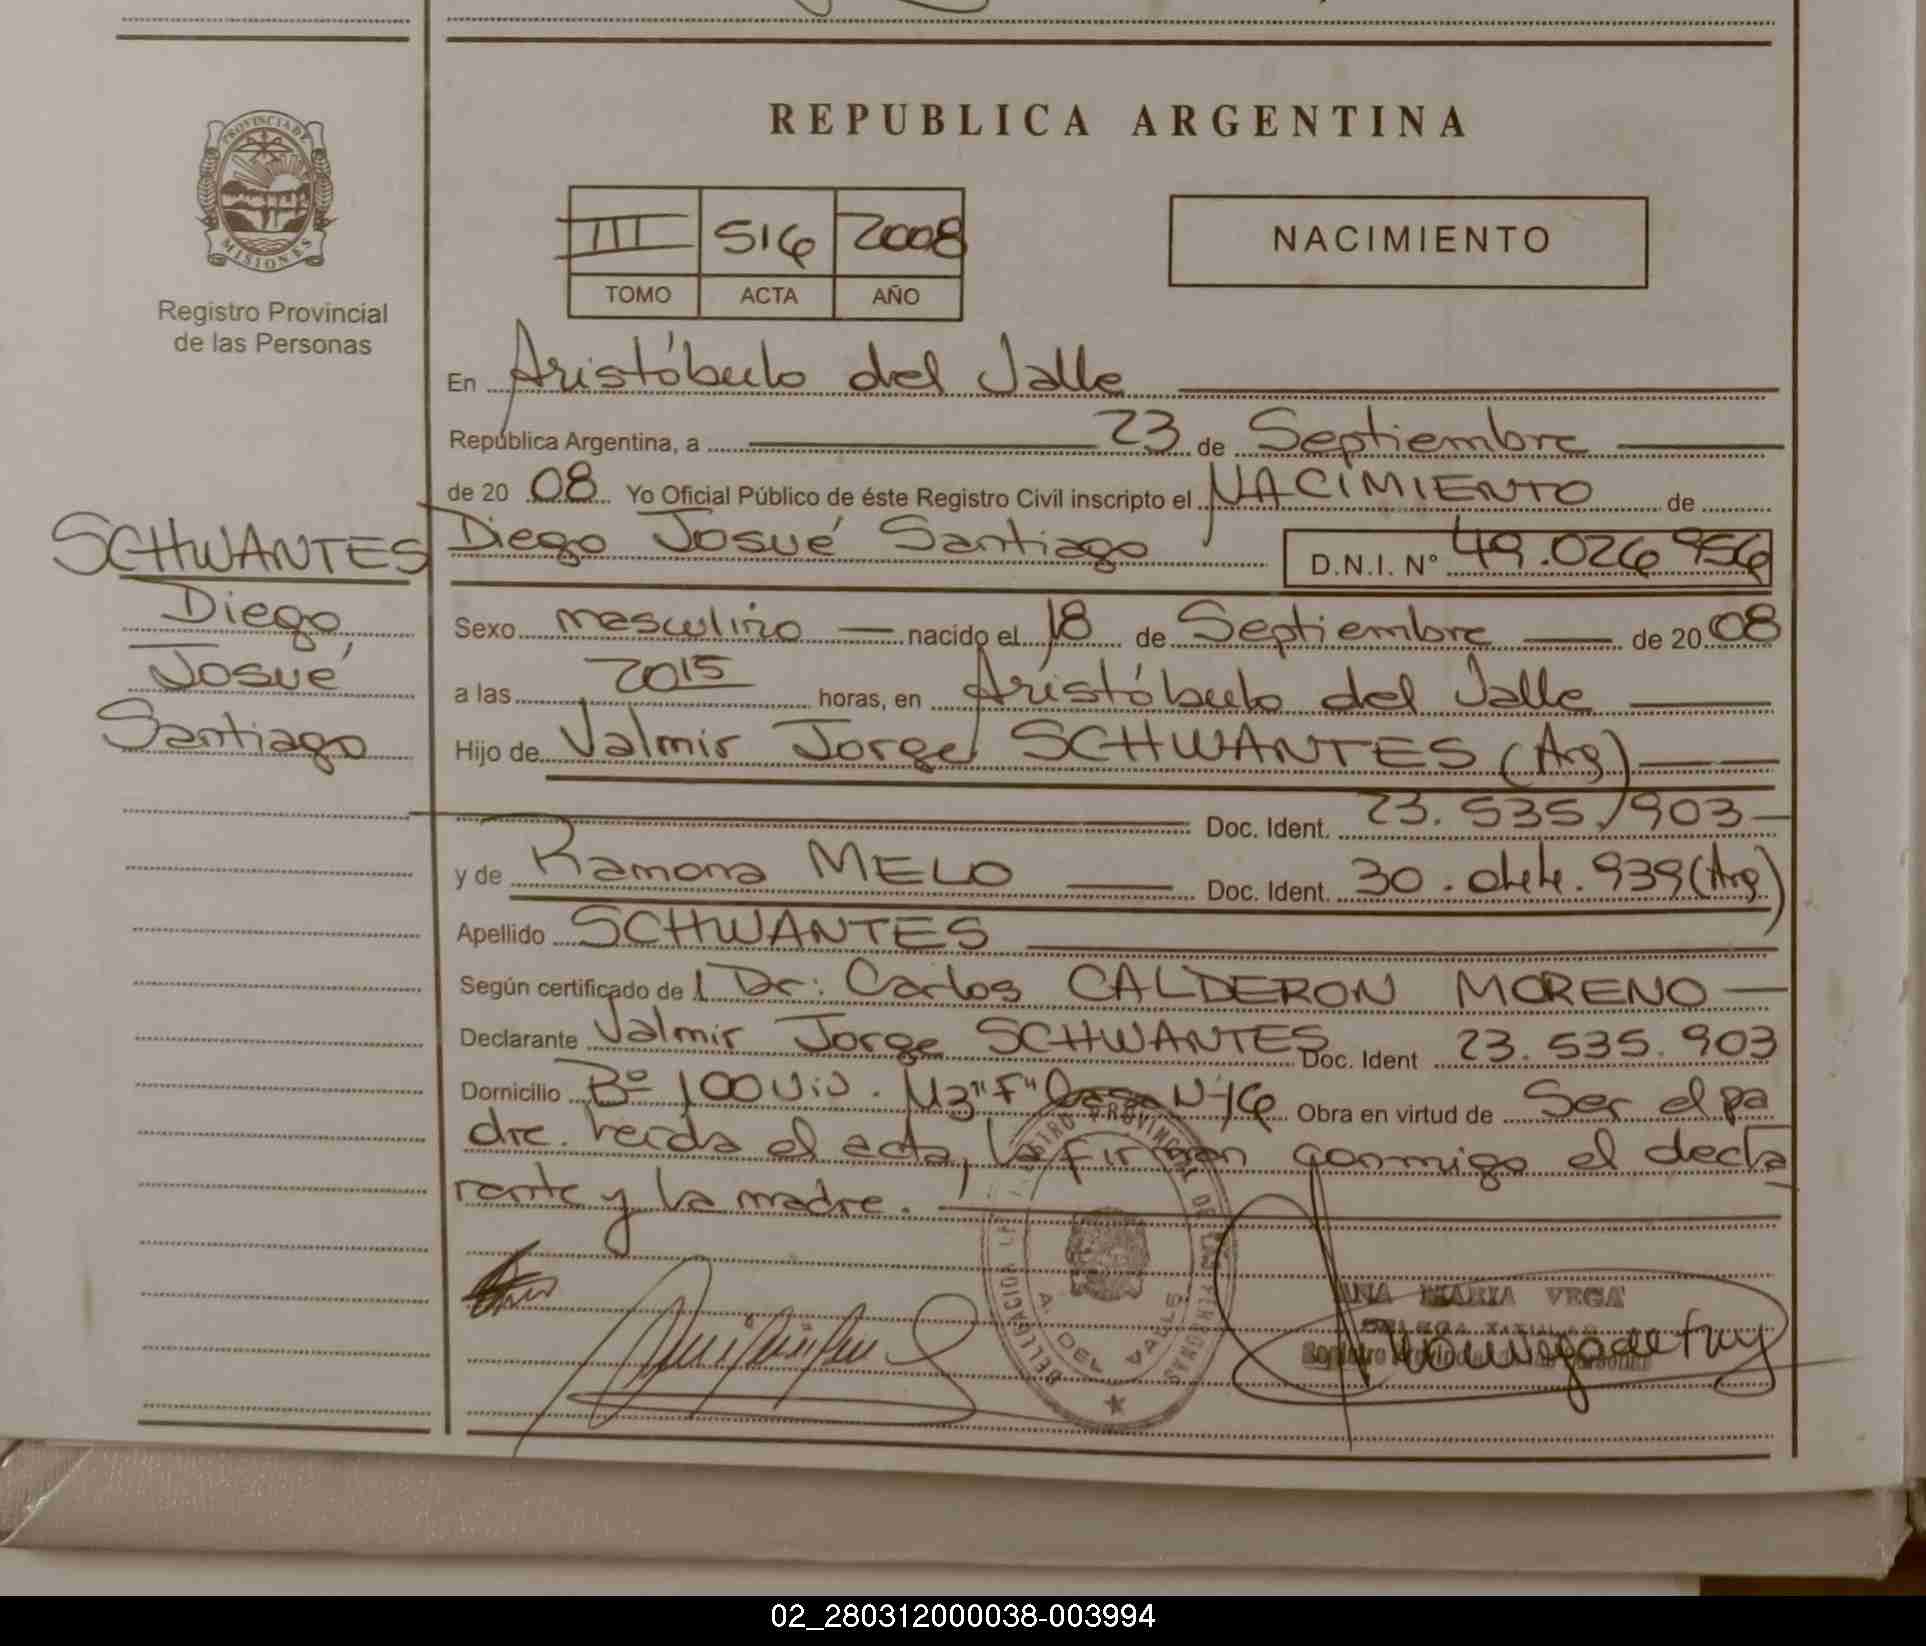 REPUBLICA ARGENTINA
PROVINCIA DE MISIONES
Registro Provincial
de las Personas
III 516 2008
TOMO ACTA AÑO
NACIMIENTO
En Aristóbulo del Valle
República Argentina, a 23 de Septiembre
de 2008 Yo Oficial Público de éste Registro Civil inscripto el NACIMIENTO de
Diego Josué Santiago D.N.I. N° 49.026 956
SCHWANTES
Diego
Josué
Santiago
Sexo masculino nacido el 18 de Septiembre de 2008
a las 2015 horas, en Aristóbulo del Valle
Hijo de Valmir Jorge SCHWANTES (Arg)
Doc. Ident. 23.535.903
y de Ramona MELO Doc. Ident. 30. 939 (Arg)
Apellido SCHWANTES
Según certificado de l Dr: Carlos CALDERON MORENO
Declarante Valmir Jorge SCHWANTES Doc. Ident 23.535.903
Domicilio B° 100 Viv. Mz "F" Casa N° 16 Obra en virtud de Ser el pa
dre. Leída el acta, la firman conmigo el decla
rante y la madre.
DELEGACION REGISTRO PROVINCIAL DE LAS PERSONAS
A. DEL VALLE
ANA MARIA VEGA
DELEGADA TITULAR
Registro Provincial de las Personas
02_280312000038-003994